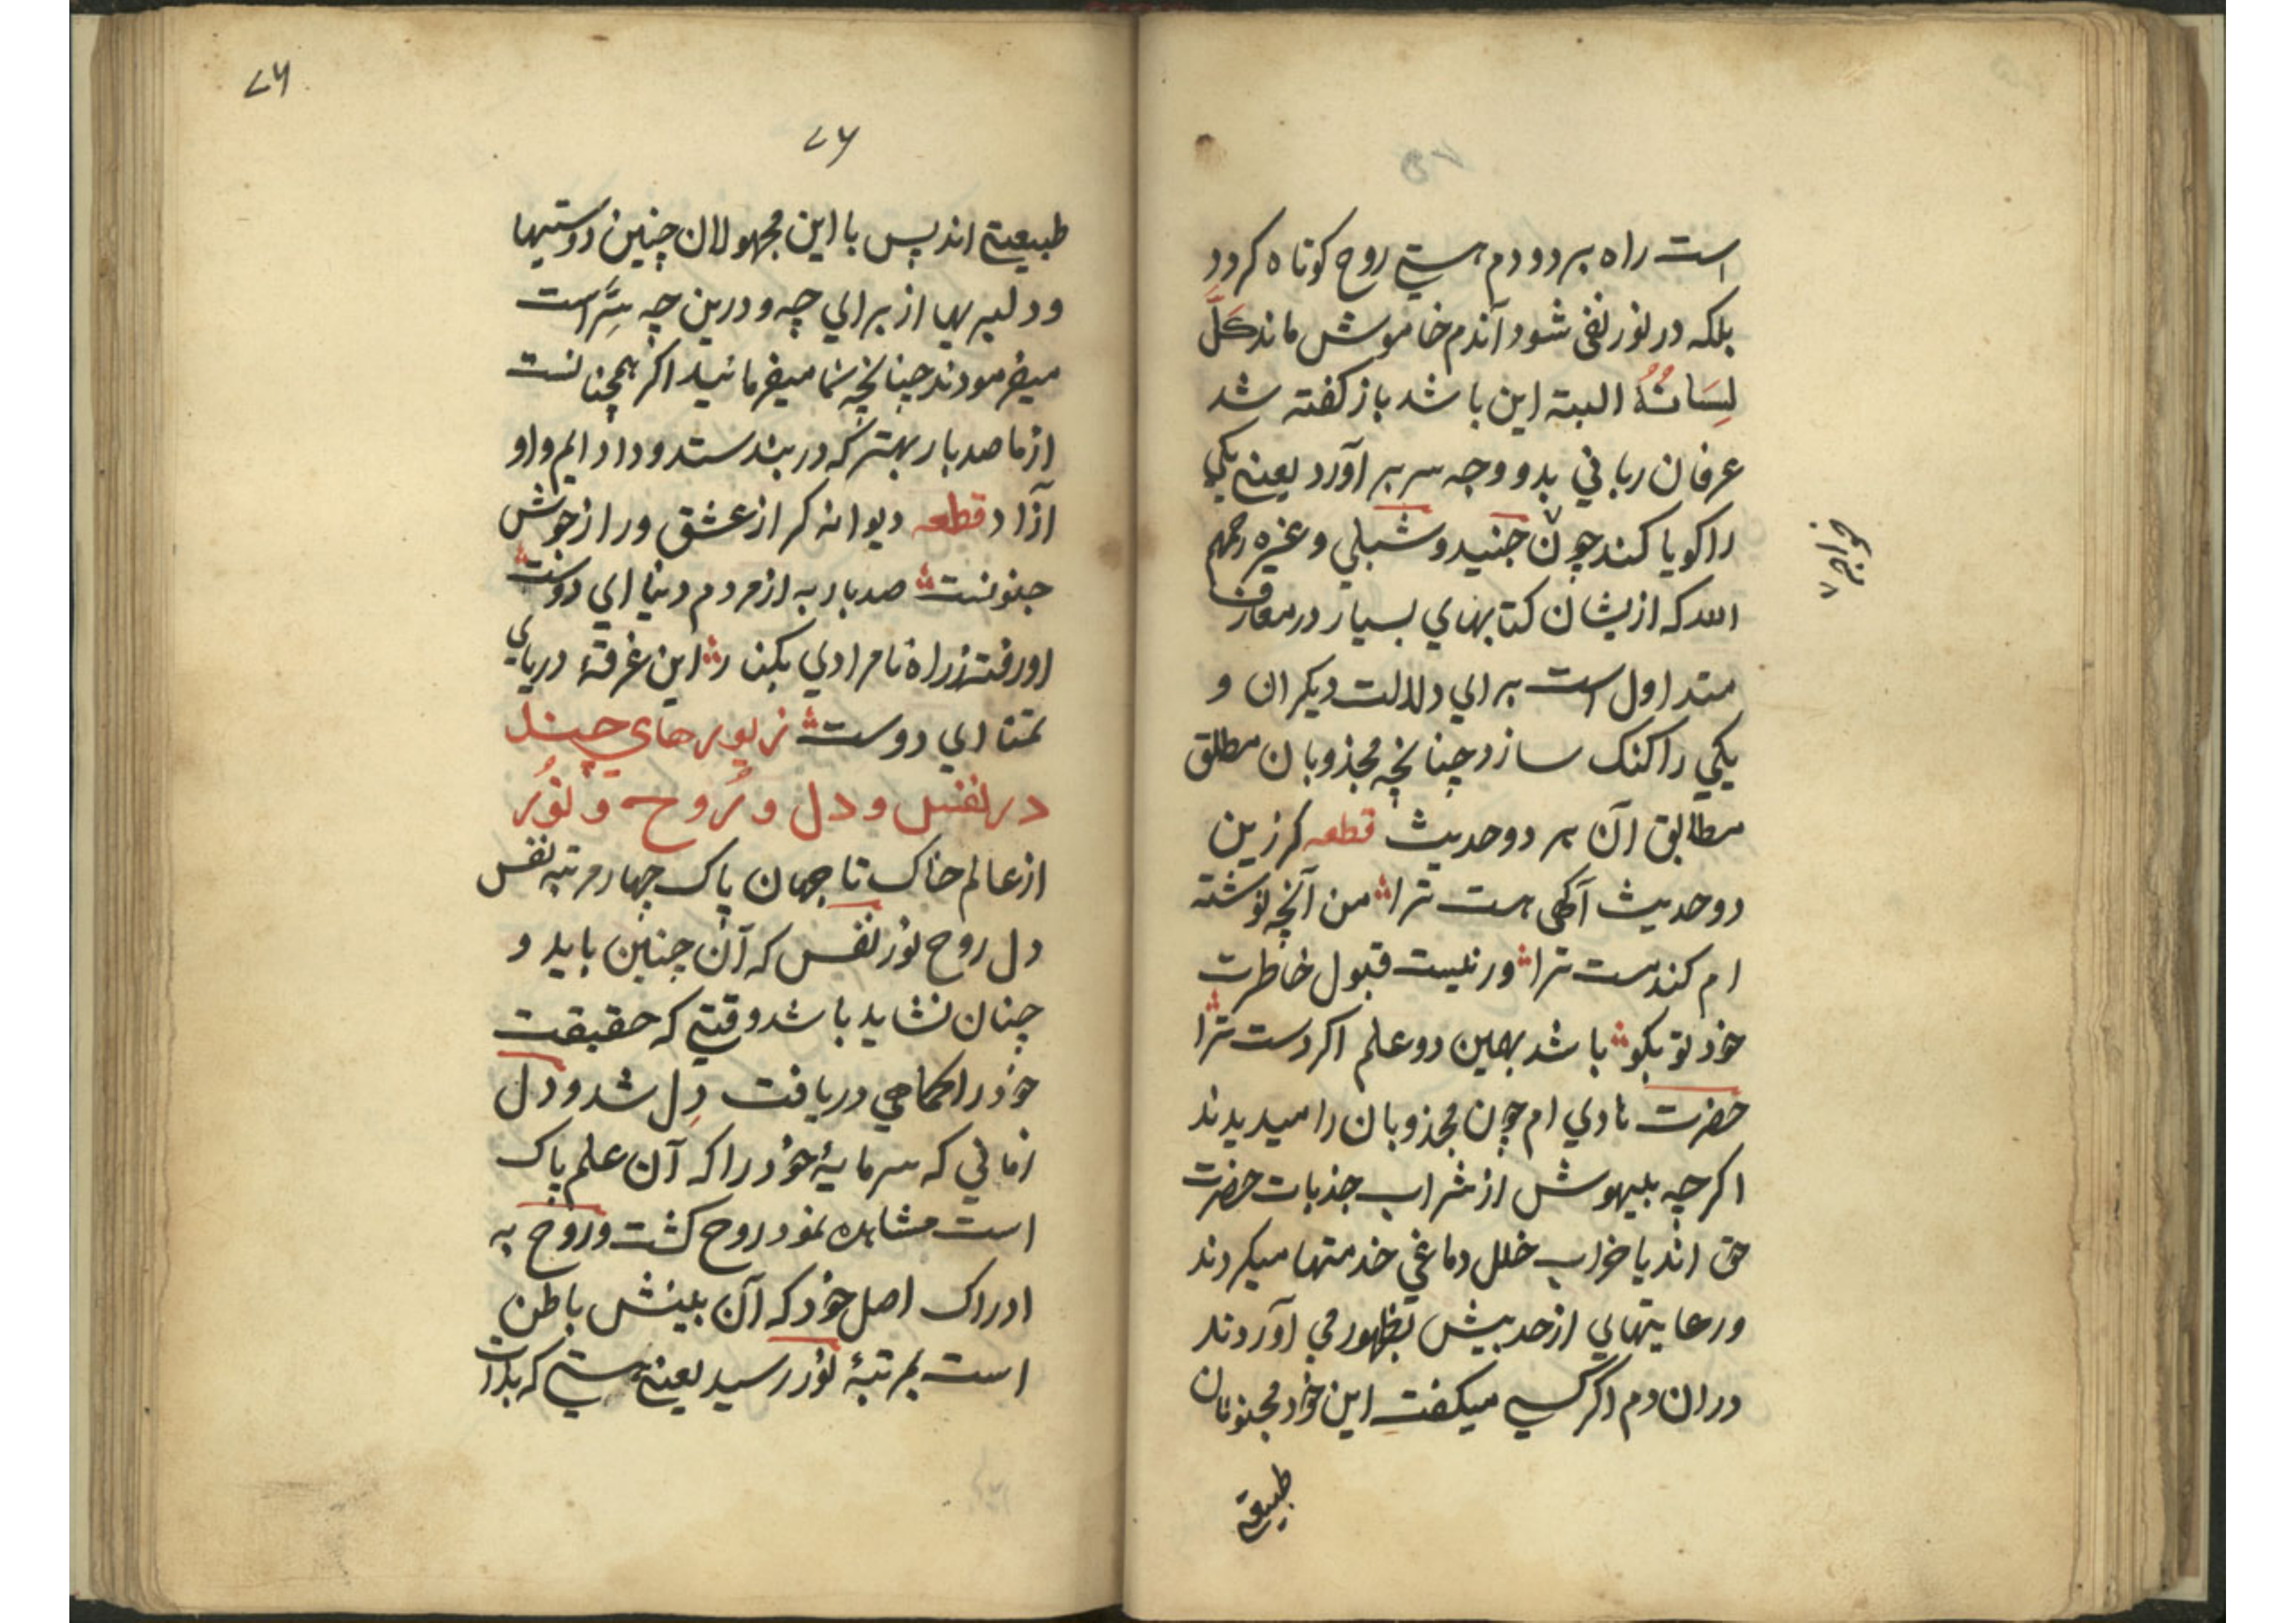 است راه برد و دم هستی روح کوتاه کردد
بلکه در نور نفی شود آندم خاموش ماند کَلَّ
لِسَانُهُ البته این باشد باز کفته شد
عرفان ربانی بدو وجه سر بر آورد یعنی یکی
را کویا کند چون جنید و شبلی و غیره رحمهم
الله که ازیشان کتابهای بسیار در معارف
متداول است برای دلالت دیکران و
یکی را کنک سازد چنانچه مجذوبان مطلق
مطابق آن هر دو حدیث قطعه کر زین
دو حدیث آکهی هست ترا من آنچه نوشته
ام کندست ترا ور نیست قبول خاطرت
خود تو بکو باشد بهمین دو علم اکر دست ترا
حضرت هادی ام چون مجذوبان را میدیدند
اکرچه بیهوش از شراب جذبات حضرت
حق اند یا خراب خلل دماغی خدمتها میکردند
و رعایتهای از حد بیش بظهور می آوردند
دران دم اکر کسی میکفت این خود مجنونان
طبیعتی
۷۶
۷۶
طبیعتی اند پس با این مجهولان چنین دوستیها
و دلبریها از برای چه و درین چه سِرّ است
میفرمودند چنانچه شما میفرمائید اکر همچنانست
از ما صد بار بهتر که در بند ستد و داد ایم و او
آزاد قطعه دیوانه کر از عشق ور از جوش
جنونست صد بار به از مردم دنیا ای دوست
او رفته ز راه نامرادی بکنار این غرقهٔ دریای
تمنا ای دوست زیورهای چند
در نفس و دل و رُوح و نُور
از عالم خاک تا جهان پاک چهار مرتبه نفس
دل روح نور نفس که آن چنین باید و
چنان نشاید باشد وقتی که حقیقت
خود را کماهی دریافت دِل شد و دل
زمانی که سرمایهٔ خود را که آن علم پاک
است مشاهده نمود روح کشت و روح به
ادراک اصل خود که آن بینش باطن
است بمرتبهٔ نور رسید یعنی هستی که بذات